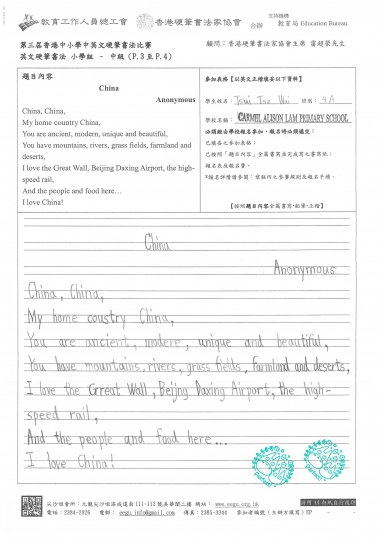 教育工作人員總工會 香港硬筆書法家協會 合辦 支持機構 教育局 Education Bureau
第三屆香港中小學中英文硬筆書法比賽 顧問：香港硬筆書法家協會主席 雷超榮先生
英文硬筆書法 小學組 － 中級 (P.3 至 P.4)
題目內容
China
Anonymous
China, China,
My home country China,
You are ancient, modern, unique and beautiful,
You have mountains, rivers, grass fields, farmland and
deserts,
I love the Great Wall, Beijing Daxing Airport, the high-
speed rail,
And the people and food here…
I love China!
參加表格【以英文正楷填妥以下資料】
學生姓名： Tsui Tsz Wai 班別： 4A
學校名稱： CARMEL ALISON LAM PRIMARY SCHOOL
必須經由學校報名參加，報名時必須遞交：
已填妥之參加表格；
已按照「題目內容」全篇書寫並完成寫之書寫紙；
報名表及報名費。
【按照題目內容全篇書寫‧鉛筆‧正楷】
China
Anonymous
China, China,
My home country China,
You are ancient, modere, unique and beautiful,
You have mountains, rivers, grass fields, farmland and deserts,
I love the Great Wall, Beijng Daxing Airport, the high-
speed rail,
And the people and food here...
I love China!
尖沙咀會所：九龍尖沙咀漆咸道南 111-113 號 網址： www.eegu.org.hk
電話： 2384-2926 電郵： eegu.info@gmail.com 傳真：2385-3344 參加者編號（主辦方填寫）EP